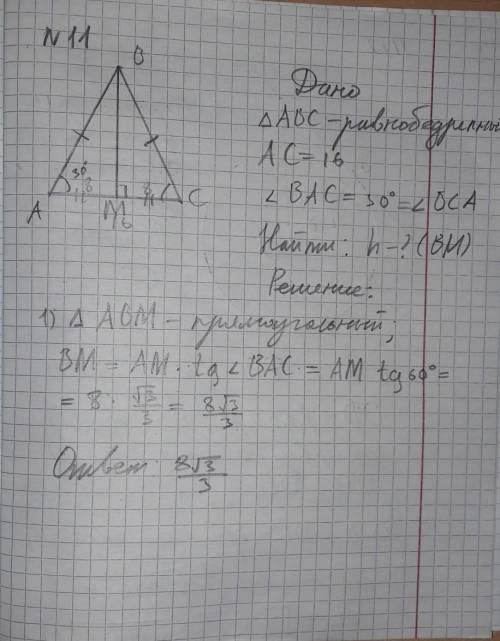 N 11
B
30°
8
8
A
M
16
C
Дано
△ABC - равнобедренный
AC = 16
∠BAC = 30° = ∠BCA
Найти: h - ? (BM)
Решение:
1) △ ABM - прямоугольный;
BM = AM · tg ∠BAC = AM tg 60° =
= 8 · √3/3 = 8√3/3
Ответ: 8√3/3